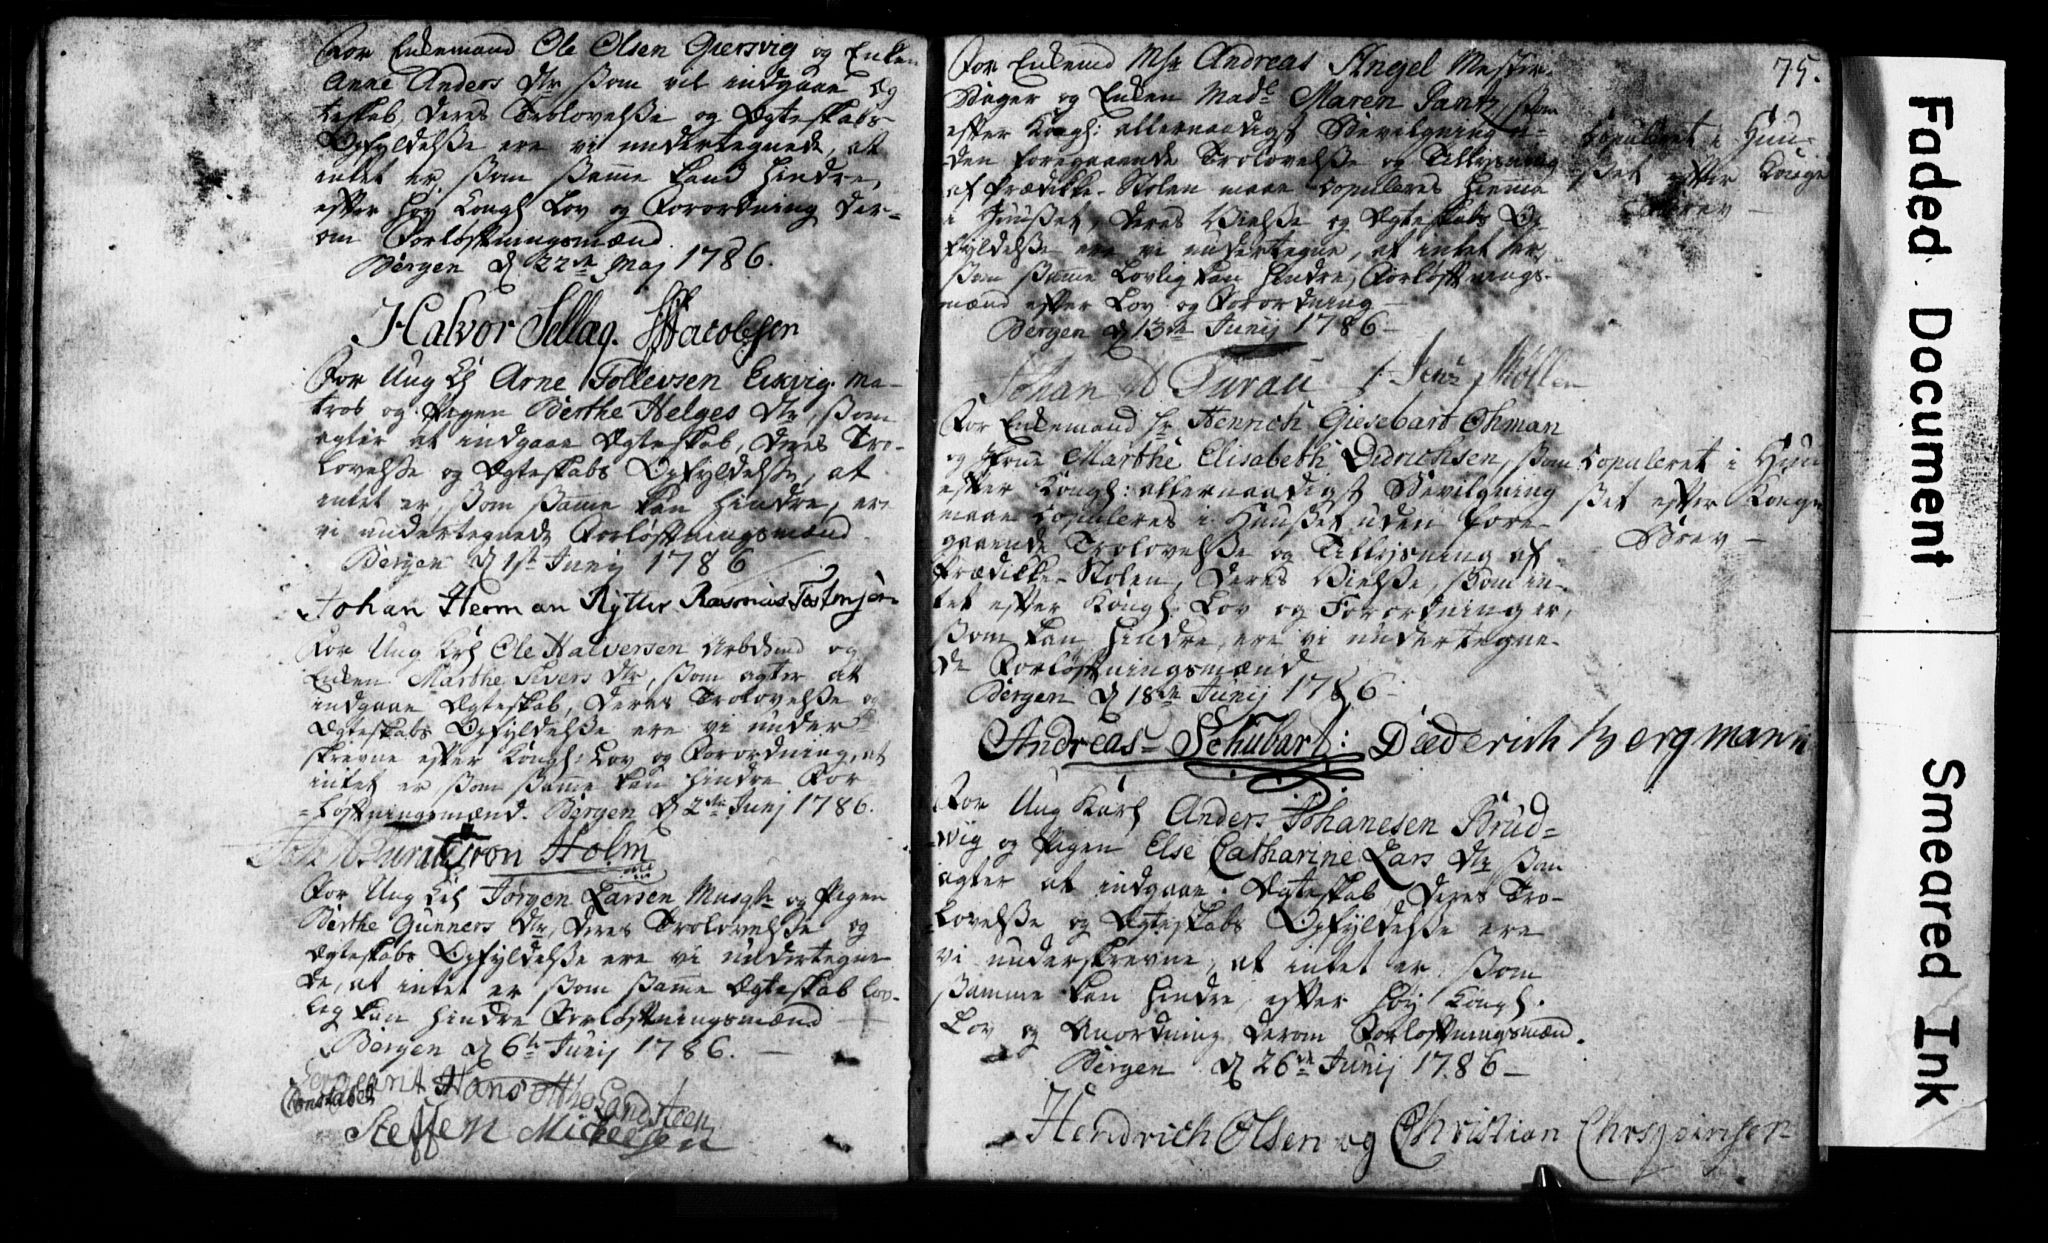 For Enkemand Ole Olsen Giersvig og Enken
Anne Anders Dtr, som vil indgaae Æg-
teskab, deres Trolovelsse og Ægteskabs
Opfyldelsse ere vi undertegnede, at
intet er som samme kand hindre,
efter høy Kongl Lov og Forordning der-
om Forloftningsmænd
Bergen d 22de Maj 1786.
Halvor Sellag. Jacobsen
For Ung K Arne Tollevsen Eikvig. Ma-
tros og Pigen Berthe Helges Dtr, som
agter at indgaae Ægteskab, deres Tro-
lovelsse og Ægteskabs Opfyldelsse, at
intet er, som samme kan hindre, ere
vi undertegnede Forløftningsmænd
Bergen d 1st Junij 1786
Johan Herman Rytter Rasmus
For Ung Krl Ole Halversen Arbdsmd og
Enken Marthe Sivers Dtr, som agter at
indgaae Ægteskab, deres Trolovelsse og
Ægteskabs Opfyldelsse ere vi under
skrevne efter Kongl: Lov og Forordning, at
intet er som samme kan hindre For-
løftningsmænd. Bergen d 2den Junj 1786.
Iron Holm
For Ung Krl Jørgen Larsen Musqtr og Pigen
Berthe Gunners Dtr, deres Trolovelsse og
Ægteskabs Opfyldelsse ere vi undertegne
de, at intet er som samme Ægteskab lov-
lig kan hindre Forløftningsmænd
Bergen d 6te Junij 1786.
Sergeant Hans Otto Sandsteen
Constabel
Steffen Mickelsen
75.
For Enkemd Msr Andreas Angel Mester
Bager og Enken Madl Maren Jantz, som
efter Kongl: allernaadigst Bevilgning u-
den foregaaende Trolovelsse og Tillysning
af Prædikke-Stolen maae Copuleres hiemme
i Huusset, deres Vielsse og Ægteskabs Op-
fyldelsse ere vi undertegne, at intet er,
som samme lovlig kan hindre, Forløftnings-
mænd efter Lov og Forordning
Bergen d 13de Junij 1786
Copuleret i Huu-
sset efter Konge
Brev
Johan D Turau Jens Møller
For Enkemand Hr Henrich Giesebart Ohman
og Jfrue Marthe Elisabeth Didrichsen, som
efter Kongl: allernaadigst Bevilgning
maae Copuleres i Huusset uden fore-
gaaende Trolovelsse og Tillysning af
Prædikke-Stolen, deres Vielsse, som in-
tet efter Kongl. Lov og Forordning er,
som kan hindre, ere vi undertegne-
de Forløftningsmænd
Bergen d 18de Junij 1786
Copuleret i Huu
sset efter Konge
Brev
Andreas Schubart: Diederich Bergmann
For Ung Karl Anders Johanesen Brud=
vig og Pigen Else Catharine Lars Dtr som
agter at indgaae Ægteskab, deres Tro-
lovelsse og Ægteskabs Opfyldelsse ere
vi underskrevne, at intet er som
samme kan hindre, efter høy Kongl.
Lov og Anordning derom Forløftningsmænd.
Bergen d 26de Junij 1786
Hendrich Olsen og Christian
Faded Document
Smeared Ink